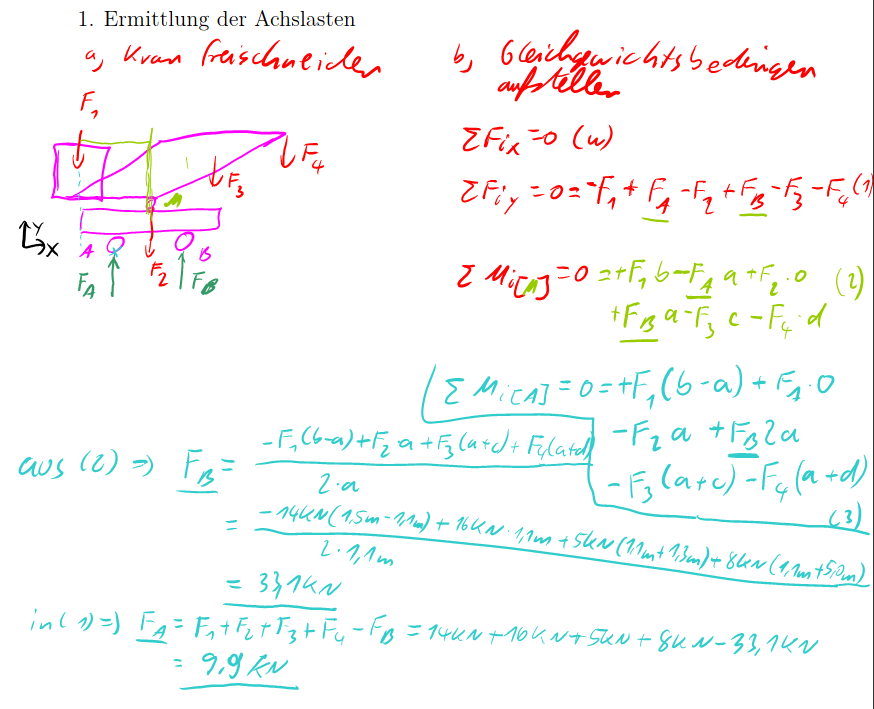 1. Ermittlung der Achslasten
a) Kran freischneiden
b) Gleichgewichtsbedingen
aufstellen
F₁
F₄
F₃
M
Y
X
A
B
F_A
F₂
F_B
ΣF_ix = 0 (w)
ΣF_iy = 0 = -F₁ + F_A - F₂ + F_B - F₃ - F₄ (1)
Σ M_i[M] = 0 = +F₁ b - F_A a + F₂ · 0 (2)
+F_B a - F₃ c - F₄ · d
Σ M_i[A] = 0 = +F₁ (b-a) + F_A · 0
-F₂ a + F_B 2a
-F₃ (a+c) - F₄ (a+d)
(3)
aus (2) => F_B = (-F₁(b-a) + F₂ a + F₃(a+c) + F₄(a+d)) / (2·a)
= (-14kN(1,5m-1,1m) + 16kN·1,1m + 5kN(1,1m+1,3m) + 8kN(1,1m+5,0m)) / (2·1,1m)
= 33,1kN
in (1) => F_A = F₁ + F₂ + F₃ + F₄ - F_B = 14kN + 16kN + 5kN + 8kN - 33,1kN
= 9,9 kN